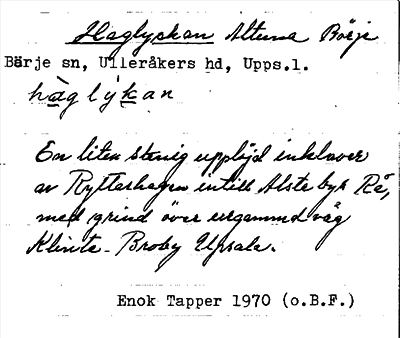 Haglyckan Altuna Börje
Bärje sn, Ulleråkers hd, Upps.l.
hàglýkan
En liten stenig upplöjd inklaver
av Ryttarhagen intill Alste bys Rå,
med grind över urgammal väg
Klinta - Broby Upsala.
Enok Tapper 1970 (o.B.F.)